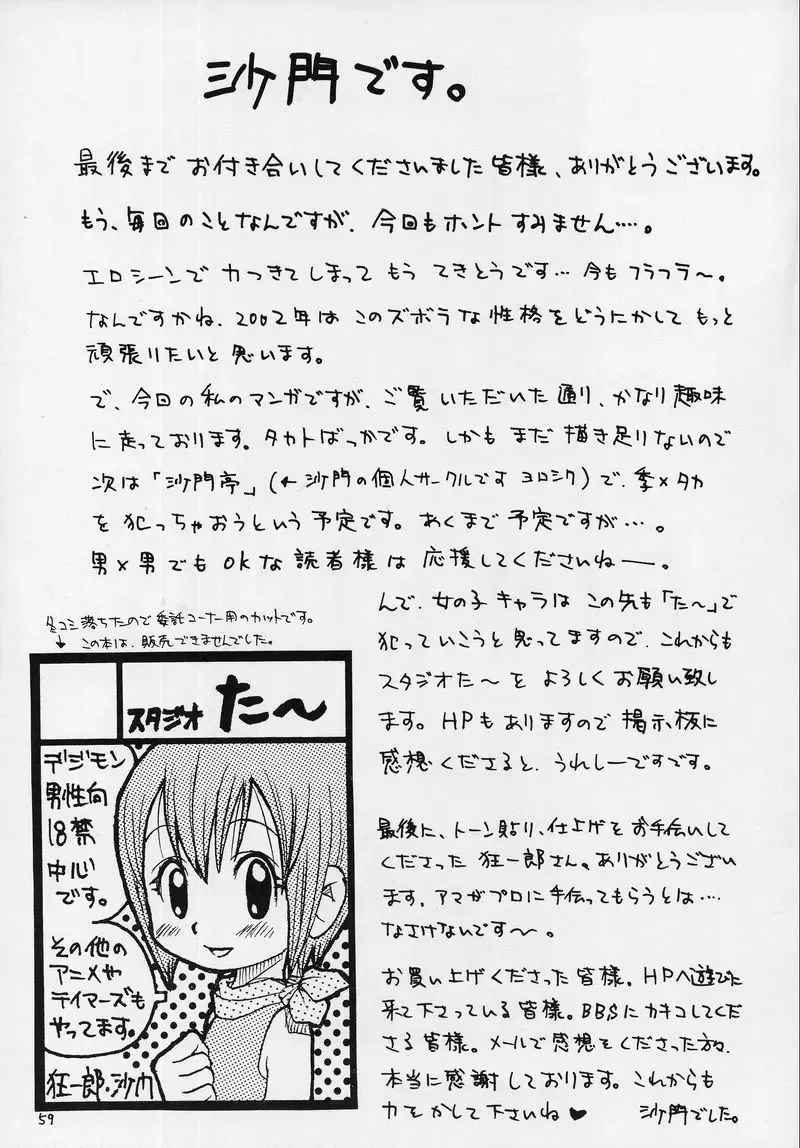 沙門です。
最後まで お付き合いしてくださいました皆様、ありがとうございます。
もう、毎回のことなんですが、今回もホント すみません‥‥。
エロシーンで 力つきてしまって もう てきとうです… 今も フラフラ～。
なんですかね、2002年は このズボラな性格をどうにかして もっと
頑張りたいと思います。
で、今回の私のマンガですが、ご覧いただいた通り、かなり趣味
に走っております。タカトばっかです。しかも まだ描き足りないので
次は「沙門亭」(←沙門の個人サークルです ヨロシク)で、季×タカ
を犯っちゃおうという予定です。あくまで予定ですが…。
男×男でもOKな読者様は応援してくださいねー。
んで、女の子キャラは この先も「た～」で
犯っていこうと思ってますので、これからも
スタジオた～を よろしく お願い致し
ます。HPもありますので 掲示板に
感想くださると、うれしーですです。
最後に、トーン貼り、仕上げをお手伝いして
くださった 狂一郎さん。ありがとうござい
ます、アマがプロに手伝ってもらうとは‥‥
なさけないです～。
お買い上げくださった 皆様。HPへ遊びに
来て下さっている皆様。BBSにカキコしてくだ
さる皆様。メールで感想をくださった方々、
本当に感謝しております。これからも
力をかして下さいね♥ 沙門でした。
冬コミ落ちたので 委託コーナー用のカットです。
↓ この本は、販売できませんでした。
スタジオ た～
デジモン
男性向
18禁
中心
です。
その他の
アニメや
テイマーズも
やってます。
狂一郎・沙門
59